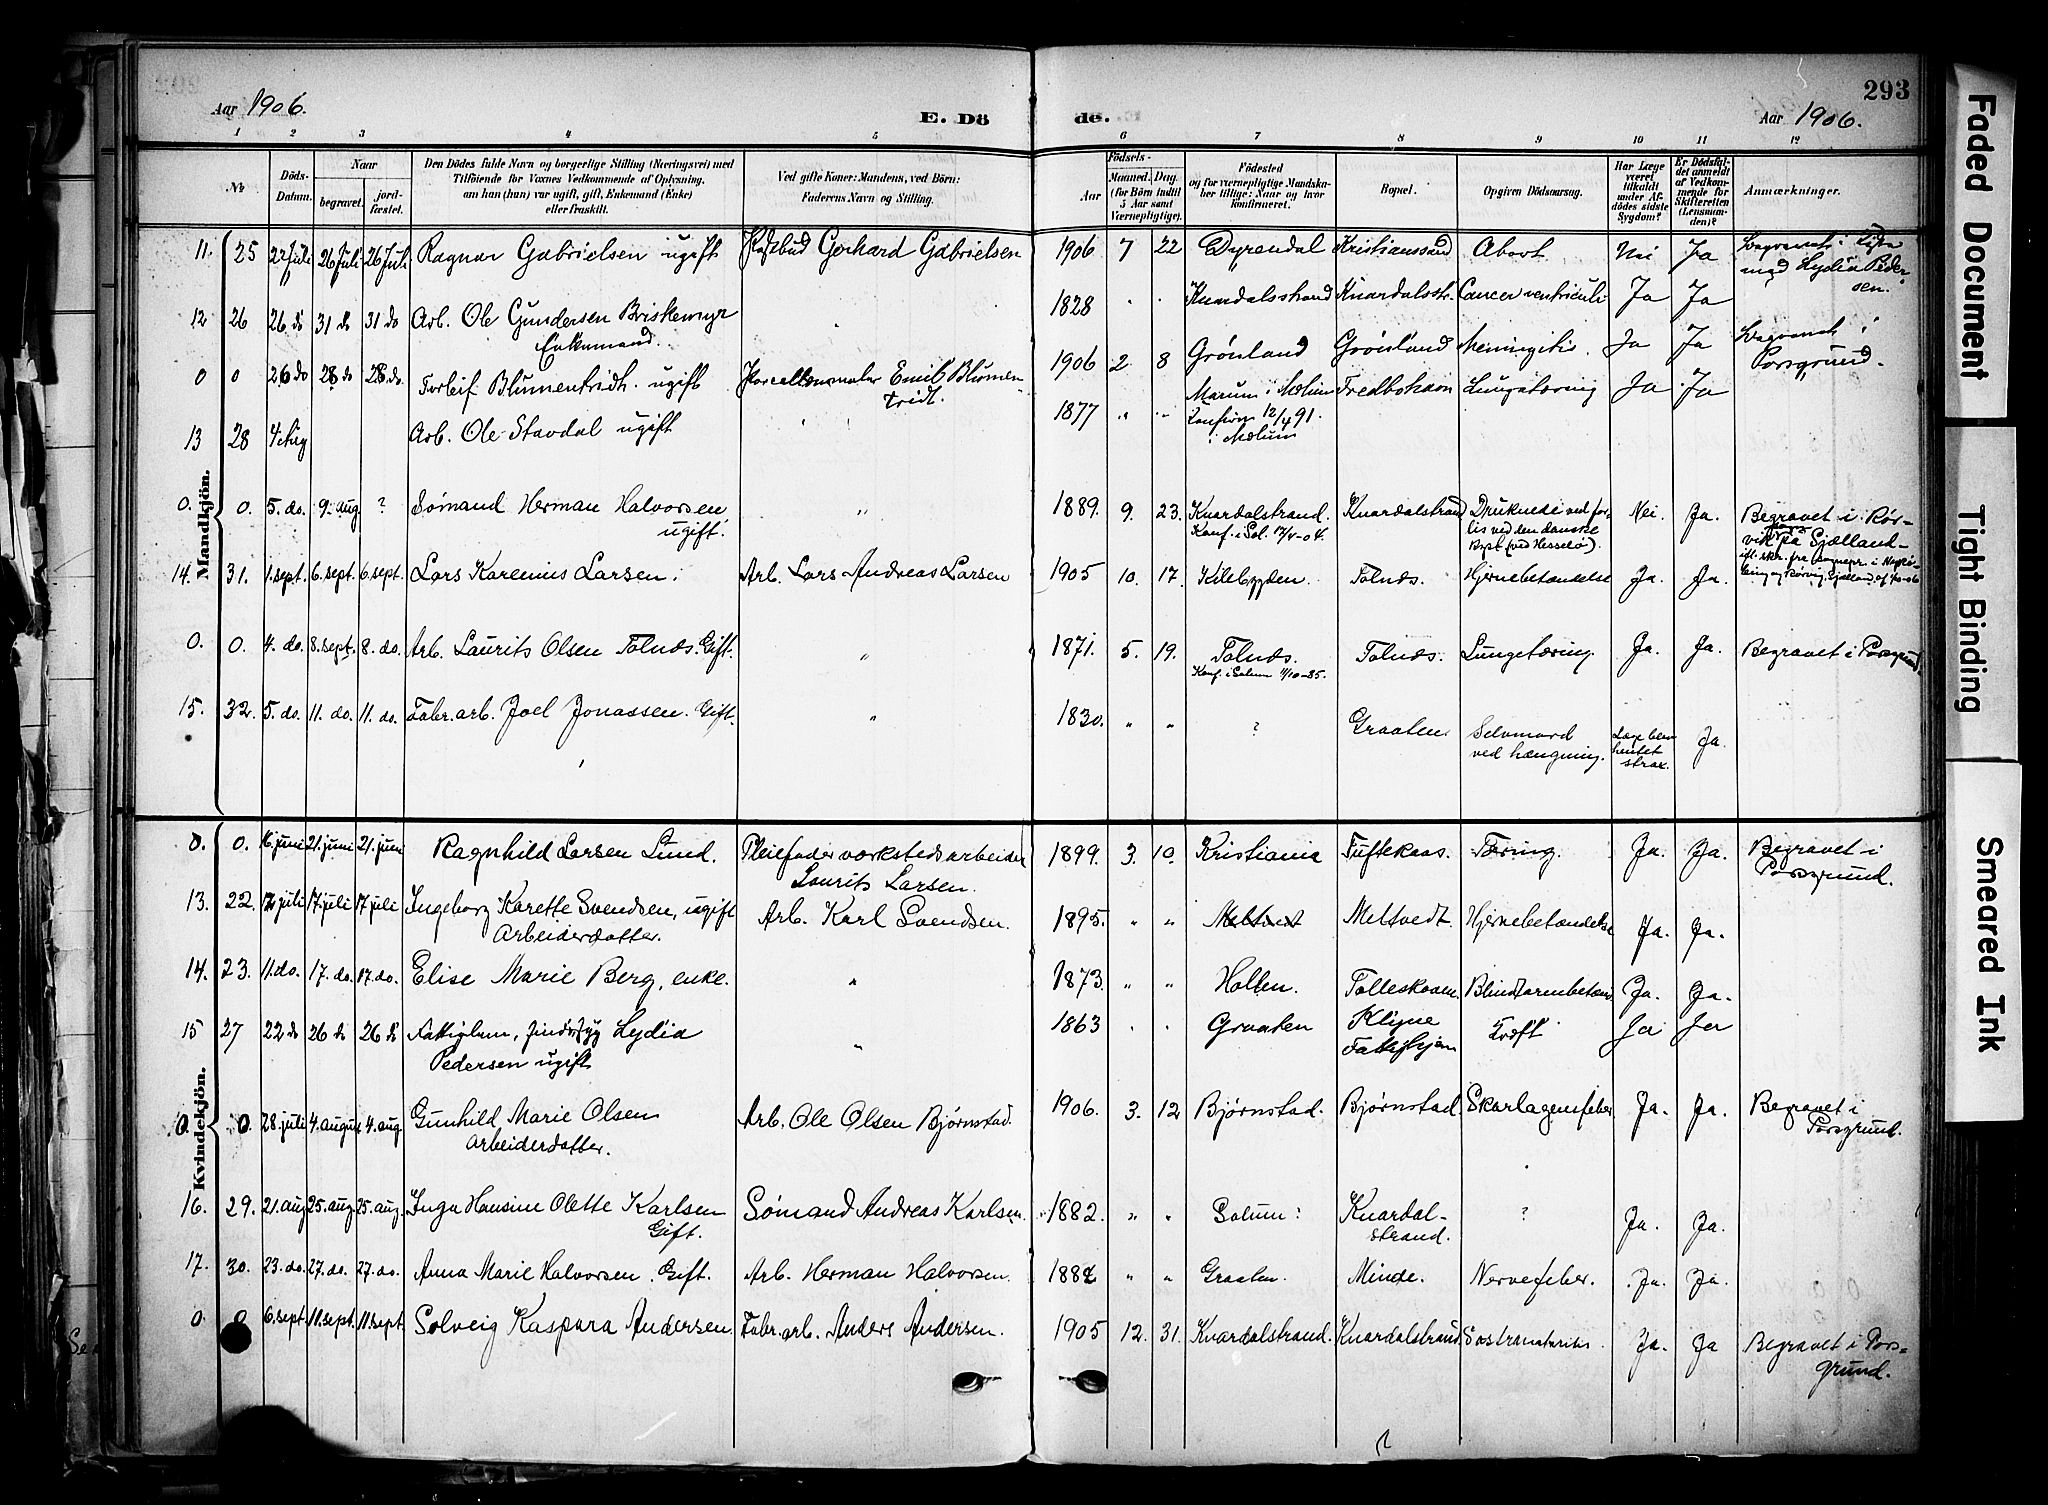 Aar 1906.
E. Dö
de.
293
Aar 1906.
1 2 3 4 5 6 7 8 9 10 11 12
No
Döds-
Datum.
Naar
begravet.
jord-
fæstet.
Den Dödes fulde Navn og borgerlige Stilling (Næringsvei) med
Tilföiende for Voxnes Vedkommende af Oplysning,
om han (hun) var ugift, gift, Enkemand (Enke)
eller fraskilt.
Ved gifte Koner: Mandens, ved Börn:
Faderens Navn og Stilling.
Födsels-
Aar
Maaned. Dag.
(for Börn indtil
5 Aar samt
Værnepligtige).
Födested
og for værnepligtige Mandska-
ber tillige: Naar og hvor
konfirmeret.
Bopæl.
Opgiven Dödsaarsag.
Har Læge
været
tilkaldt
under Af-
dödes sidste
Sygdom?
Er Dödsfal-
det anmeldt
af Vedkom-
mende for
Skifteretten
(Lensman-
den)?
Anmærkninger.
Mandkjön.
11. 25 22 Juli 26 Juli 26 Juli Ragnar Gabrielsen ugift Gerhard Gabrielsen 1906 7 22 Dyrendal Kristianssand Abort Nei Ja Begravet i Kiste
med Lydia Peder
sen.
12 26 26 do 31 do 31 do Arb. Ole Gundersen Briskemyr " 1828 " " Knardalsstrand Knardalsstr. Cancer ventriculi Ja Ja
Enkemand.
0 0 26 do 28 do 28 do. Torleif Blumentridh. ugift Porcellensmaler Emil Blumen 1906 2 8 Grönland Grönland Meningitis. Ja Ja Begravet i
tridt.
Porsgrund.
13 28 4 Aug Arb. Ole Stavdal ugift " 1877 " " Marum i Mælum Fredbohavn Lungetæring Ja Ja
Konfirm 12/4 91.
i Mælum
0. 0. 5. do. 9. aug ? Sömand Herman Halvorsen, " 1889. 9. 23. Knardalstrand. Knardalstrand Druknede ved for- Nei. Ja. Begravet i Rör-
ugift. Konf. i Sol. 17/4-04. lis ved den danske vik på Sjælland-
kyst (ved Hesselö).
14. 31. 1. sept. 6. sept. 6. sept. Lars Karenius Larsen. Arb. Lars Andreas Larsen 1905 10. 17. Kilebygden. Tolnæs. Hjernebetændelse Ja. Ja.
0. 0. 4. do. 8. sept. 8. do. Arb. Laurits Olsen Tolnæs. Gift. " 1871. 5. 19. Tolnæs. Tolnæs. Lungetæring. Ja. Ja. Begravet i Porsgrund.
Konf. i Solum 11/10-85.
15. 32. 5. do. 11. do. 11. do. Fabr. arb. Joel Jonassen. Gift. " 1830. " " ? Graaten. Selvmord Læge blev Ja.
ved hængning. hentet
strax.
Kvindekjön.
0. 0. 16. juni 21. juni 21. juni Ragnhild Larsen Lund. Pleiefader værkstedsarbeider 1899. 3. 10. Kristiania Tuftekaas. Tæring. Ja. Ja. Begravet i
Laurits Larsen. Porsgrund.
13. 22. 12 juli 17 juli 17 juli Ingeborg Karette Svendsen, ugift Arb. Karl Svendsen. 1895. " " Meltvedt Meltvedt. Hjernebetændelse Ja. Ja.
Arbeiderdatter.
14. 23. 11. do. 17. do. 17. do. Elise Marie Berg, enke. " 1873. " " Holten. Tolleskoven. Blindtarmbetæn Ja. Ja.
15 27 22 do 26 do 26 do Lydia " 1863 " " Graaten Klyve Kræft Ja Ja
Pedersen ugift Fattighjem
0. 0. 28. juli 4. august 4. aug. Gunhild Marie Olsen Arb. Ole Olsen Björnstad. 1906. 3. 12 Björnstad. Björnstad. Skarlagensfeber Ja. Ja. Begravet i
Arbeiderdatter. Porsgrund.
16. 29. 21. aug 25. aug. 25. aug. Inga Hansine Olette Karlsen Sömand Andreas Karlsen. 1882. " " Solum? Knardal- ? Ja. Ja.
Gift. strand.
17. 30. 23. do. 27. do. 27. do. Anna Marie Halvorsen. Gift. Arb. Herman Halvorsen. 1882 " " Graaten. Minde. Nervefeber. Ja. Ja.
0. 0 6. sept. 11. sept. 11. sept. Solveig Kaspara Andersen. Fabr. arb. Anders Andersen. 1905 12. 31. Knardalstrand. Knardalstrand Ja. Ja Begravet i Pors-
grund.
Faded Document
Tight Binding
Smeared Ink